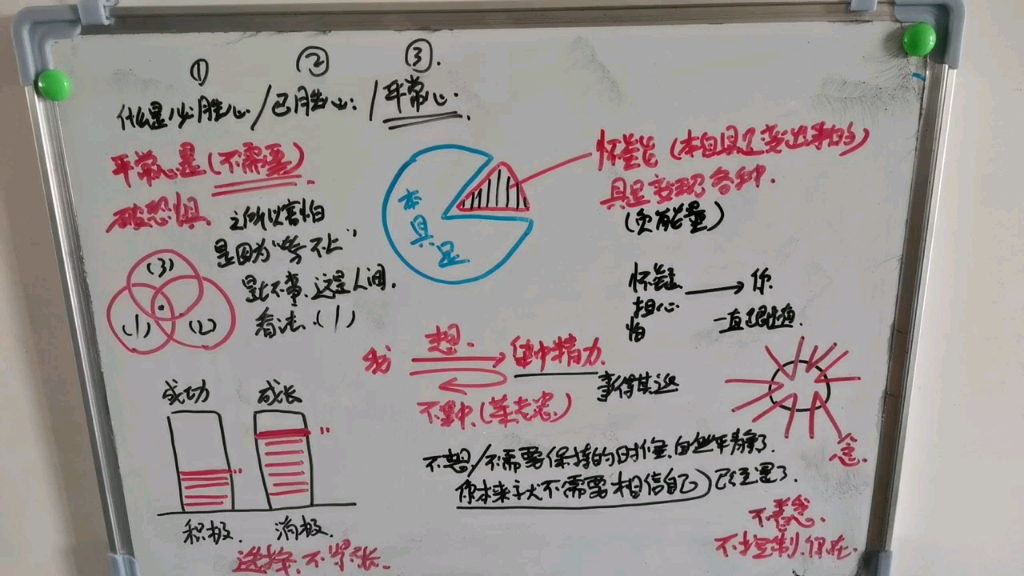 ① ② ③.
什么是必胜心/已胜心:/平常心.
平常心是(不需要)
破恐惧
之所以害怕
是因为“考不上”
是不常.这是人间.
看法.(1)
(3)
(1) (2)
本具足
怀疑能
具足变现各种.
(负能量)
怀疑 → 你
担心
怕
一直
我 想. 集中精力.
不集中
事得其
念.
成功 成长
积极. 消极.
选择.不紧张.
不想/不需要保持的时候 自然平静了.
你本来就不需要相信自己)已经是了
不控制.